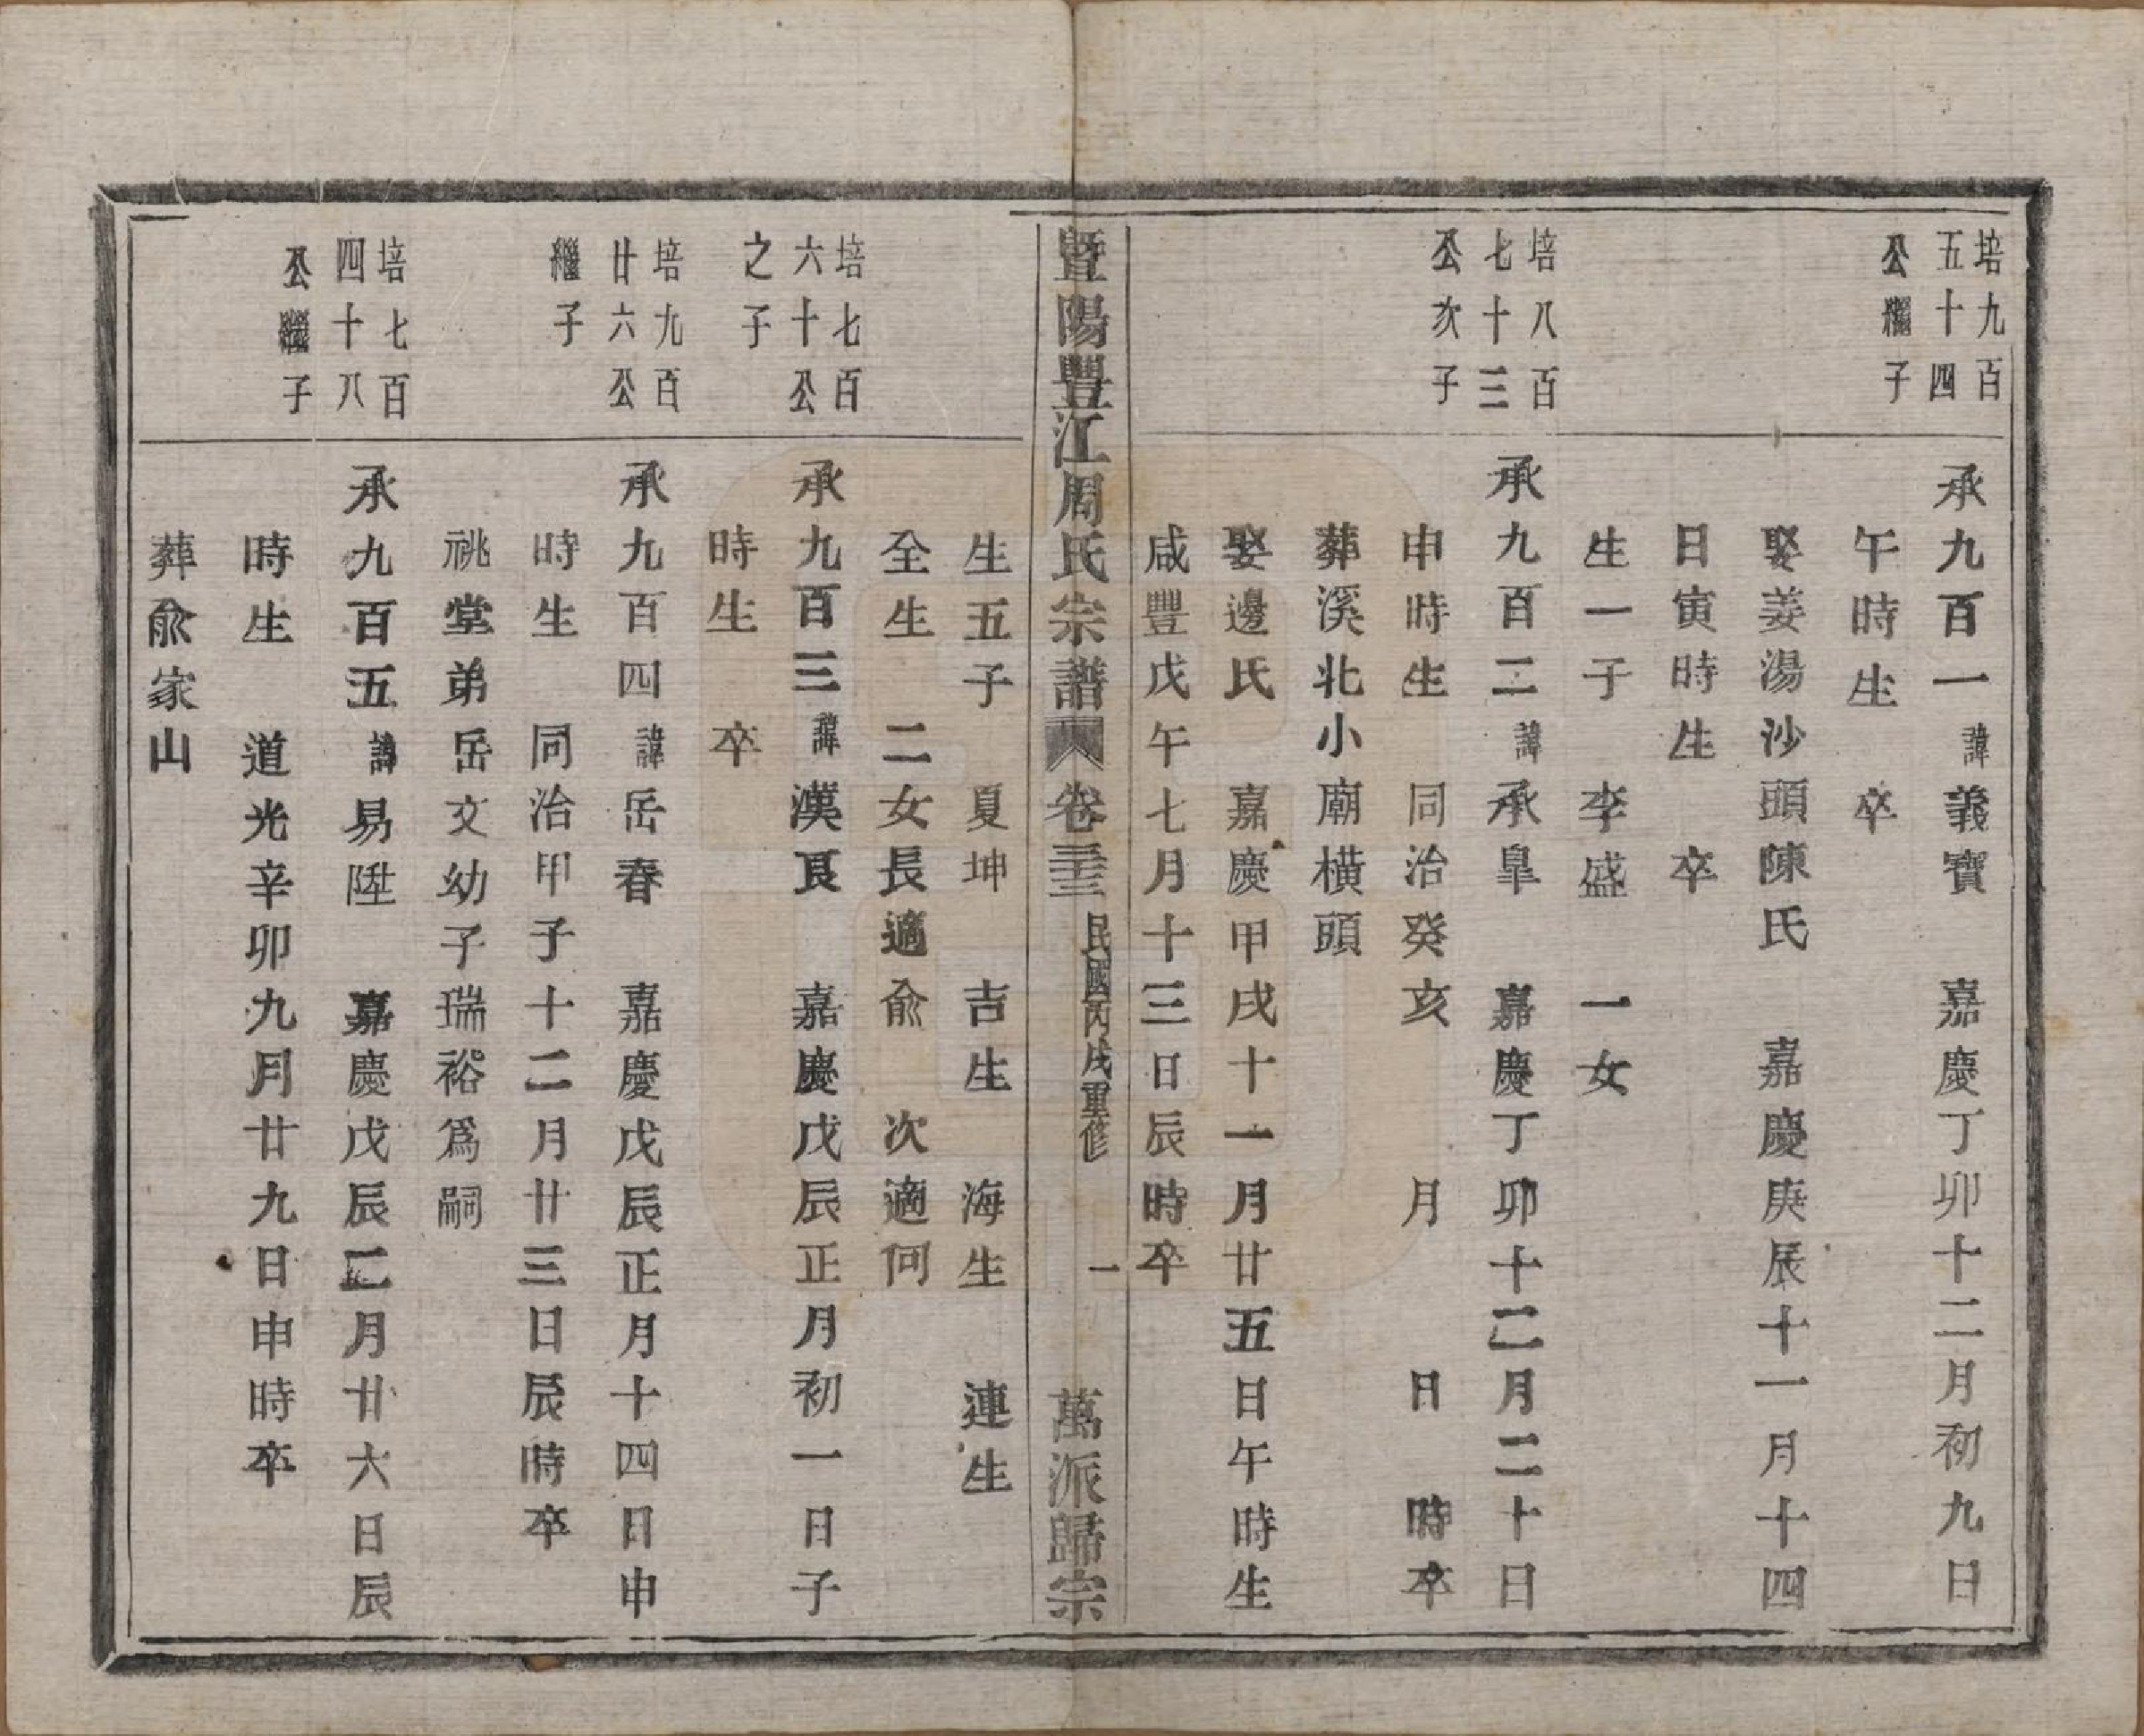 培九百
五十四
公繼子
承九百一諱義寶 嘉慶丁卯十二月初九日
午時生 卒
娶姜湯沙頭陳氏 嘉慶庚辰十一月十四
日寅時生 卒
生一子 李盛 一女
培八百
七十三
公次子
承九百二諱承皐 嘉慶丁卯十二月二十日
申時生 同治癸亥 月 日 時卒
葬溪北小廟橫頭
娶邊氏 嘉慶甲戌十一月廿五日午時生
咸豐戊午七月十三日辰時卒
暨陽豐江周氏宗譜 卷三十三 民國丙戌重修 一 萬派歸宗
生五子 夏坤 吉生 海生 連生
全生 二女長適俞 次適何
培七百
六十公
之子
承九百三諱漢艮 嘉慶戊辰正月初一日子
時生 卒
培九百
廿六公
繼子
承九百四諱岳春 嘉慶戊辰正月十四日申
時生 同治甲子十二月廿三日辰時卒
祧堂弟岳文幼子瑞裕爲嗣
培七百
四十八
公繼子
承九百五諱易陞 嘉慶戊辰二月廿六日辰
時生 道光辛卯九月廿九日申時卒
葬俞家山